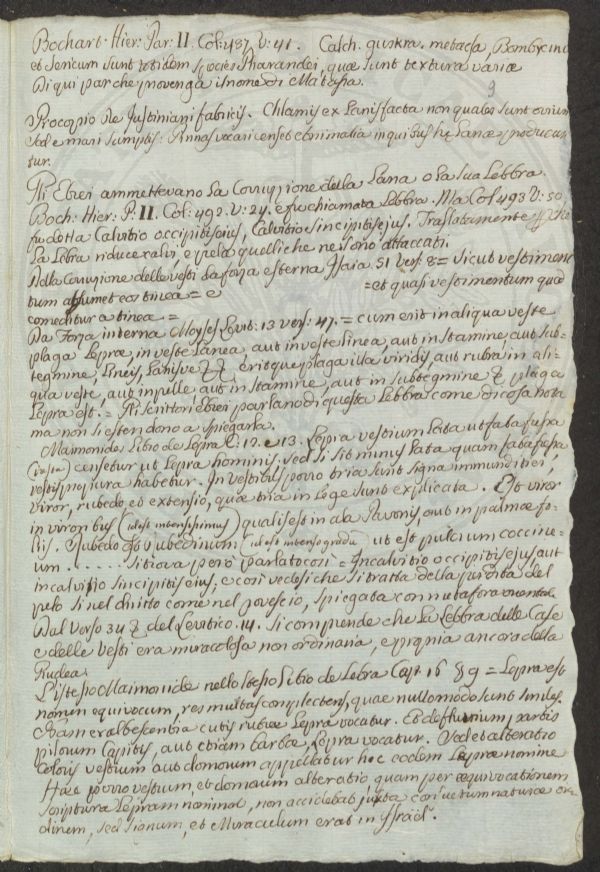 Bochart. Hier: Par: II Col: 487. V: 41. Calch. guskra. metacsa, Bombycinu
et Sericum sunt totidem species Pharandei, quæ sunt textura variæ
Di qui par che provenga il nome di Matassa.
9
Procopio de Justiniani fabricis. Chlamis ex Lanis facta non quales sunt ovium
sed e mari sumptis: Pinnas vocari censet ebnimalia in quibus hæ Lanæ producun
tur.
Gli Ebrei ammettevano la Corruzione della Lana o la sua Lebbra.
Boch: Hier: P: II. Col: 492. V: 24. e fu chiamata Lebbra. Ma Col 493 V: 50
fu detta Calvitio occipitis ejus, Calvitio sincipitis ejus. Traslatamente
La Lebra riduce calvi, e pela quelli che ne sono attaccati.
Della Corruzione delle vesti da forza esterna Isaia 51 vers 8 = sicut vestimen
tum absumet eos tinea = e = et quasi vestimentum quod
comeditur a tinea =
Da Forza interna Moyses Levit: 13 vers: 47. = cum erit in aliqua veste
plaga Lepræ, in veste Lanea, aut in veste Linea, aut in stamine, aut sub-
tegmine, Lineis, Lanisve & & erit que plaga illa viridis, aut rubra in ali-
qua veste, aut in pelle aut in stamine, aut in subtegmine & plaga
Lepra est. = Gli scrittori Ebrei parlano di questa Lebbra come di cosa nota
ma non si estendono a spiegarla.
Maimonide Libro de Lepra C: 12. e 13. Lepra vestium lata ut faba fussa
censetur ut Lepra hominis, sed si sit minus lata quam faba fussa,
vestis pro pura habetur. In vestibus porro tria sunt signa immunditiei,
viror, rubedo et extensio, quæ tria in Lege sunt explicata. Est viror
in viroribus (idest intensissimus) qualis est in ala Pavonis, aut in palmæ fo-
liis. Rubedo est rubedinum (idest intenso gradu) ut est pulcrum coccine-
um ...... si trova però parlato così = In calvitio occipitis ejus, aut
in calvitio sincipitis ejus, e così vedesi che si tratta della perdita del
pelo sì nel dritto come nel rovescio, spiegata con metafora orientale
Dal verso 34 & del Levitico. 14. si comprende che la Lebbra delle Case
e delle vesti era miracolosa non ordinaria, e propria ancora della
Giudea.
L'istesso Maimonide nello stesso Libro de Lebra Capt. 16 § 9 = Lepra est
nomen equivocum, res multas complectens, quae nullo modo sunt similes.
Nam et albescentia cutis rubræ Lepra vocatur. Et defluvium partis
pilorum Capitis, aut etiam barbæ, Lepra vocatur. Sed et alteratio
coloris vestium aut domorum appellatur hoc eodem Lepræ nomine
Hæc porro vestium, et domorum alteratio quam per æquivocationem
scriptura Lepram nominat, non accidebat juxta consuetum naturæ or-
dinem, sed signum, et Miraculum erat in Israel.